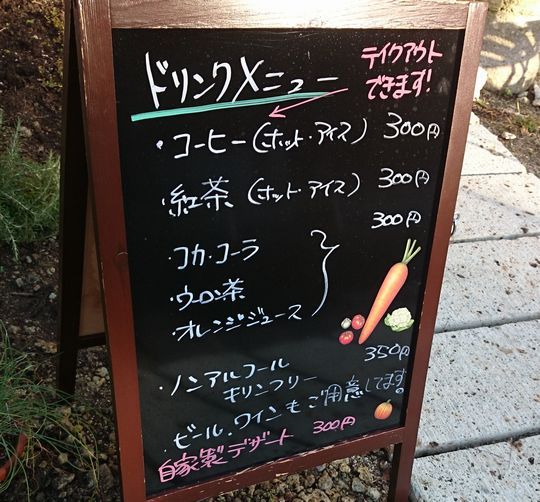 ドリンクメニュー
テイクアウト
できます!
・コーヒー(ホット・アイス) 300円
・紅茶(ホット・アイス) 300円
300円
・コカ・コーラ
・ウーロン茶
・オレンジジュース
・ノンアルコール 350円
キリンフリー
・ビール、ワインもご用意してます。
自家製デザート 300円